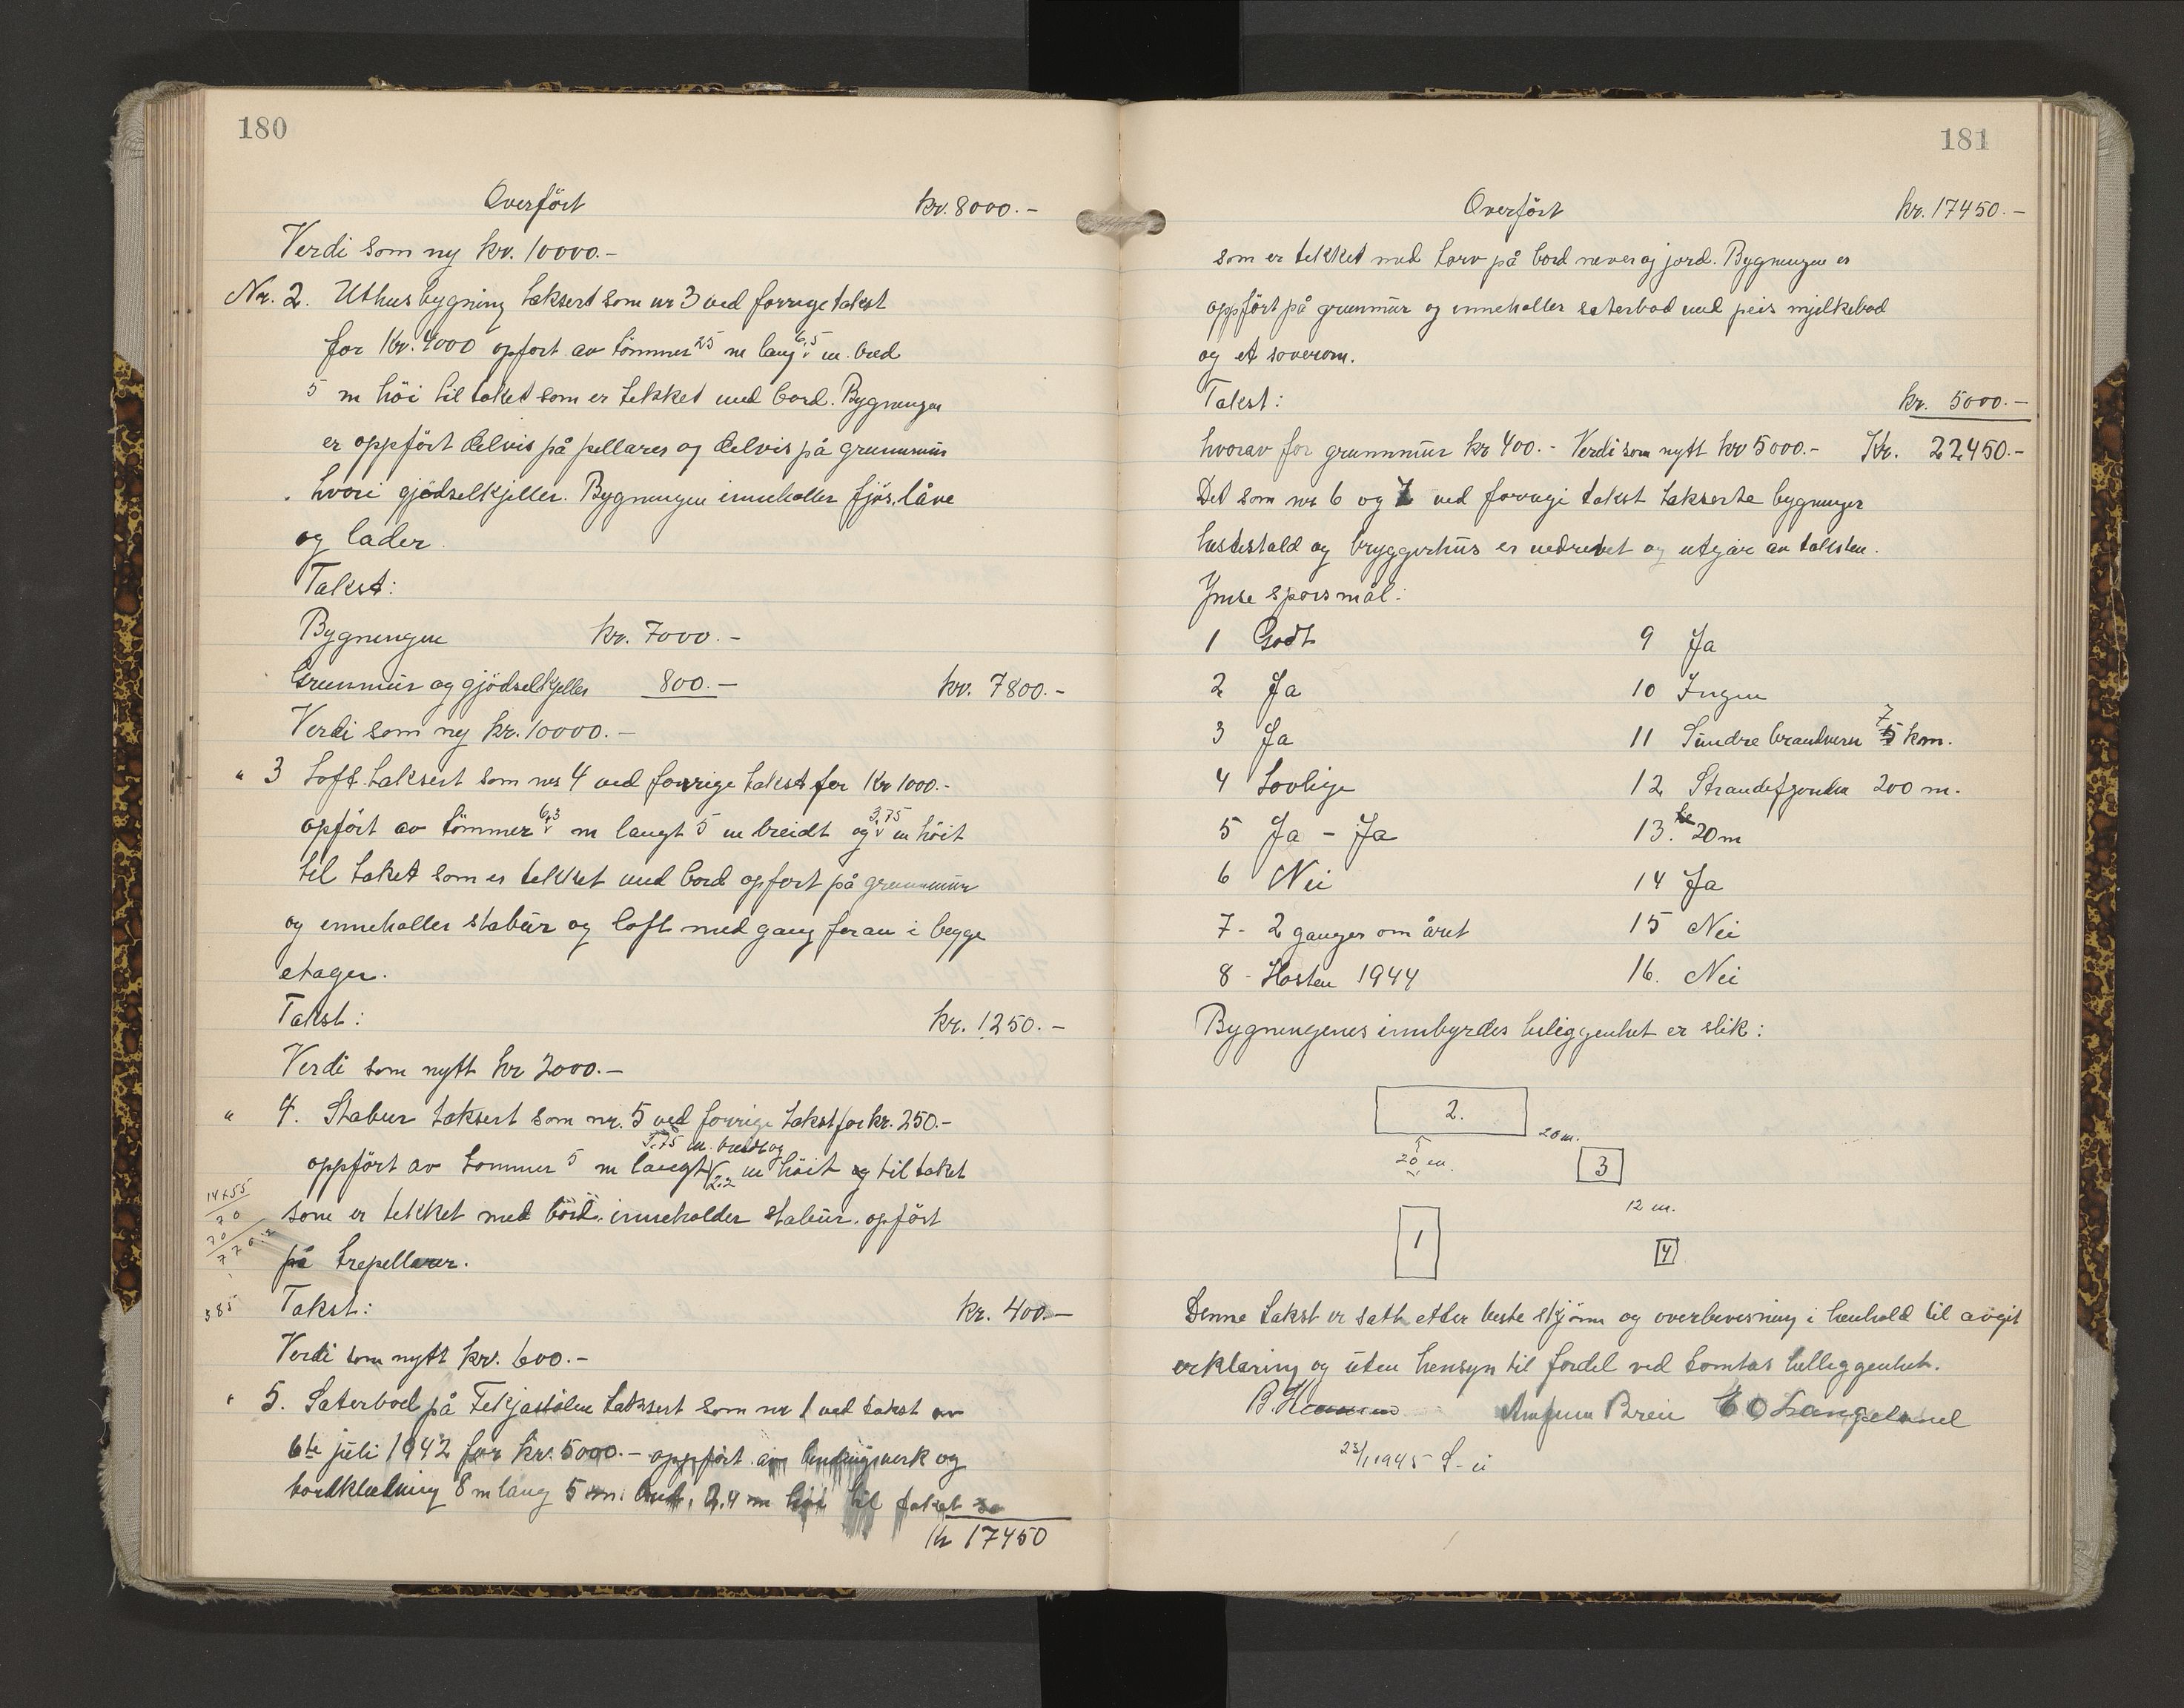 180
Overført kr. 8000.-
Verdi som ny kr. 10000.-
Nr. 2. Uthusbygning taksert som nr 3 ved forrige takst
for Kr. 4000 opfort av tömmer 25 m lang 6,5 m. bred
5 m höi til taket som er tekket med bord. Bygningen
er oppfört delvis på pellarer og delvis på grunnmur
hvori gjödselkjeller. Bygningen inneholler fjös, låve
og lader.
Takst:
Bygningen kr. 7000.-
Grunnmur og gjödselkjeller 800.- kr. 7800.-
Verdi som ny kr. 10000.-
" 3 Loft taksert som nr 4 ved forrige takst for Kr 1000.-
opfört av tömmer 6,3 m langt 5 m breidt og 3,75 m höit
til taket som er tekket med bord opfort på grunnmur
og inneholler stabur og loft med gang foran i begge
etager.
Takst: kr. 1250.-
Verdi som nytt kr 2000.-
" 4. Stabur taksert som nr. 5 ved forrige takst for kr. 250.-
oppfört av tommer 5 m langt 3.75 m. breidt og 2.2 m höit og til taket
som er tekket med bord, inneholder stabur. opfört
på trepellarer.
14x55
70
70
770
385
Takst: kr. 400.-
Verdi som nytt kr. 600.-
" 5. Saterbod på Tekjastölen taksert som nr 1 ved takst av
6te juli 1942 for kr. 5000.- oppfört av bindingsverk og
bordkledning 8 m lang 5 m. bred, 2,4 m höi til taket
Kr 17450
181
Overført kr. 17450.-
som er tekket med torv på bord never og jord. Bygningen er
oppfört på grunnmur og inneholler seterbod med peis mjelkebod
og et soverom.
Takst: kr. 5000.-
hvorav for grunnmur kr 400.- Verdi som nytt kr 5000.- Kr. 22450.-
Det som nr 6 og 7 ved forrige takst takserte bygninger
hestestald og bryggerhus er nedrevet og utgår av taksten.
Ymse sporsmål:
1 Godt
2 Ja
3 Ja
4 Lovlige
5 Ja - Ja
6 Nei
7 - 2 ganger om året
8 - Hosten 1944
9 Ja
10 Ingen
11 Sundre brandvern 7 km.
12 Strandefjorden 200 m.
13. 20 m
14 Ja
15 Nei
16. Nei
Bygningenes innbyrdes beliggenhet er slik:
2.
20 m.
20 m.
3
12 m.
1
4
Denne takst er satt etter beste skjönn og overbevisning i henhold til avgit
erklæring og uten hensyn til fordel ved tomtas belliggenhet.
Breie
23/1 1945